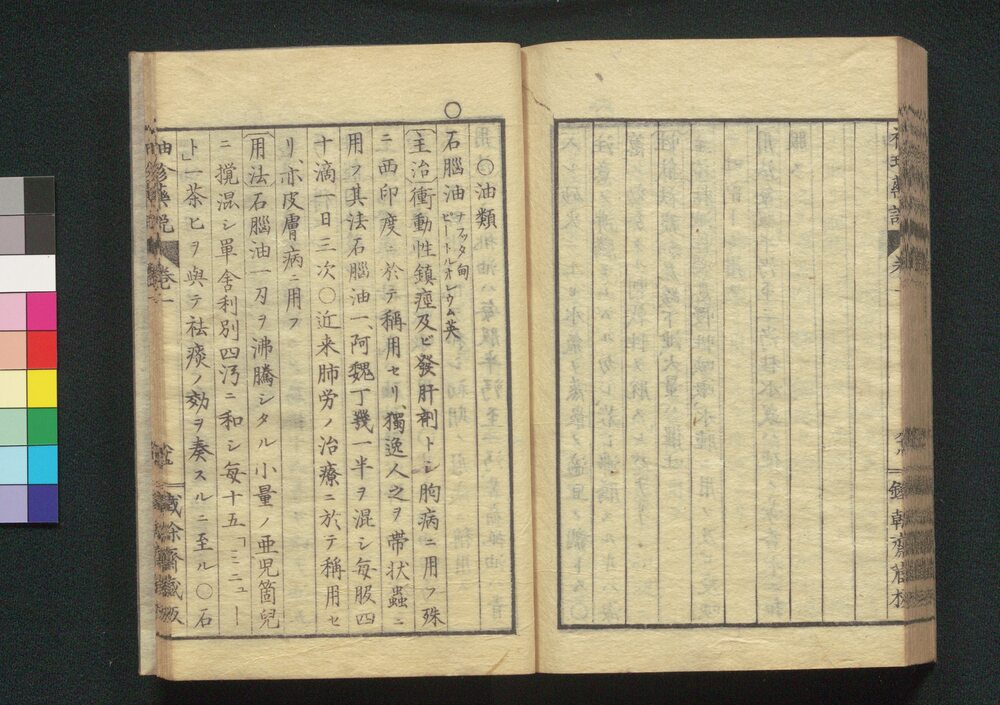 〇油類
〇石腦油 ナフタ甸 ピートルオレウム英
主治 衝動性鎮痙及ビ發肝剤トシ胸病ニ用フ殊
ニ西印度ニ於テ稱用セリ、獨逸人之ヲ帯状蟲ニ
用フ其法石腦油一、阿魏丁幾一半ヲ混シ毎服四
十滴一日三次〇近来肺労ノ治療ニ於テ稱用セ
リ、亦皮膚病ニ用フ
用法 石腦油一刃ヲ沸騰シタル小量ノ亜児箇兒
ニ攪混シ單舎利別四沔ニ和シ毎十五「ミニュー
ト」一茶匕ヲ與テ祛痰ノ効ヲ奏スルニ至ル〇石
袖珍藥説 巻一